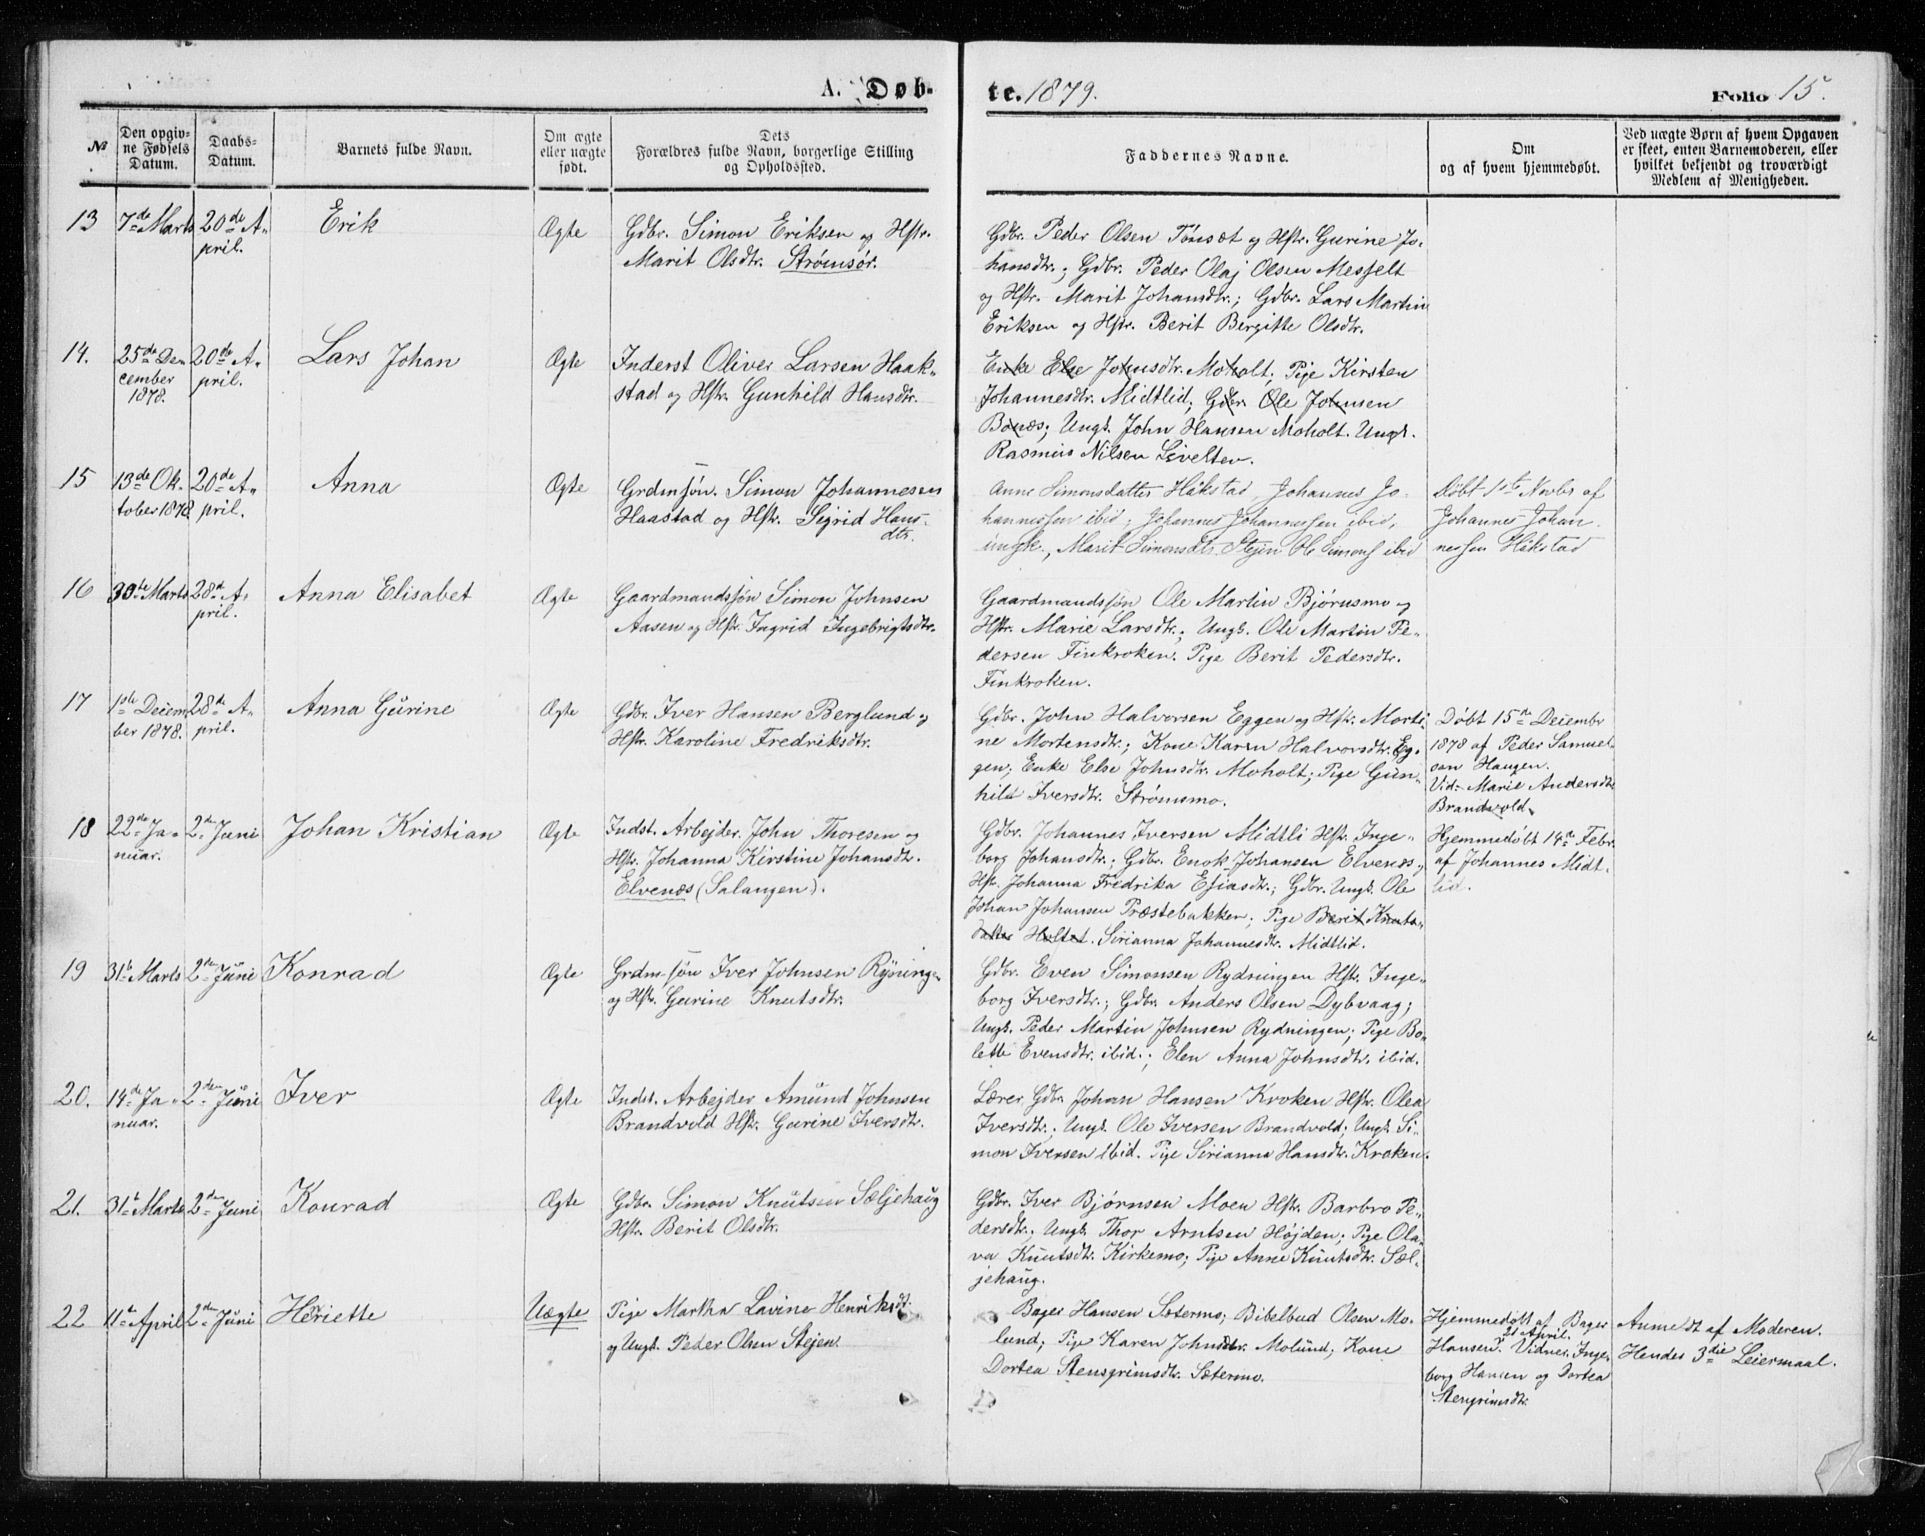 A. Døbte. 1879.
Folio 15.
№
Den opgivne Fødsels Datum.
Daabs-Datum.
Barnets fulde Navn.
Om ægte eller uægte født.
Dets Forældres fulde Navn, borgerlige Stilling og Opholdssted.
Faddernes Navne.
Om og af hvem hjemmedøbt.
Ved uægte Børn af hvem Opgaven er skeet, enten Barnemoderen, eller hvilket bekjendt og troværdigt Medlem af Menigheden.
13
7de Marts
20de A-
pril.
Erik
Ægte
Gdbr. Simon Eriksen og Hstr.
Marit Olsdtr. Strømsør.
Gdbr. Peder Olsen Tønsæt og Hstr. Gurine Jo-
hansdtr.; Gdbr. Peder Olaj Olsen Mesfelt
og Hstr. Marit Johansdtr.; Gdbr. Lars Martin
Eriksen og Hstr. Berit Bergitte Olsdtr.
14.
25de De-
cember
1878.
20de A-
pril.
Lars Johan
Ægte
Inderst Oliver Larsen Haak-
stad og Hstr. Gunhild Hansdtr.
Enke Else Johnsdtr. Moholt; Pige Kirsten
Johannesdtr. Midtlid; Gdbr. Ole Johnsen
Bønæs; Ungk. John Hansen Moholt. Ungk.
Rasmus Nilsen
15
13de Ok-
tober 1878
20de A-
pril.
Anna
Ægte
Grdmsøn. Simon Johannesen
Haastad og Hstr. Sigrid Hans-
dtr.
Anne Simonsdatter Håkstad, Johannes Jo-
hannessen ibid; Johannes Johannessen ibid,
ungk., Marit Simonsdtr Stejen Ole Simons ibid
Døbt 1ste Novbr af
Johannes Johan
nessen Håkstad
16
30te Marts
28de A-
pril.
Anna Elisabet
Ægte
Gaardmandssøn Simon Johnsen
Aasen og Hstr. Ingrid Ingebrigtsdtr.
Gaardmandssøn Ole Martin Bjørnsmo og
Hstr. Marie Larsdtr.; Ungk. Ole Martin Pe-
dersen Finkroken. Pige Berit Pedersdtr.
Finkroken.
17
1ste Decem-
ber 1878.
28de A-
pril.
Anna Gurine
Ægte
Gdbr. Iver Hansen Berglund og
Hstr. Karoline Fredriksdtr.
Gdbr. John Halvorsen Eggen og Hstr. Marti-
ne Mortensdtr.; Kone Karen Halvorsdtr. Eg-
gen; Enke Else Johnsdtr. Moholt; Pige Gun-
hild Iversdtr. Strømsmo.
Døbt 15de December
1878 af Peder Samuel-
sen Haugen.
Vid. Marie Andersdtr
Brandvold.
18
22de Ja-
nuar.
2den Juni
Johan Kristian
Ægte
Indst. Arbejder. John Thoresen og
Hstr. Johanna Kirstine Johansdtr.
Elvenæs (Salangen).
Gdbr. Johannes Iversen Midtli Hstr. Inge-
borg Johansdtr.; Gdbr. Enok Johansen Elvenæs,
Hstr. Johanna Fredrika Esiasdtr.; Gdbr. Ungk. Ole
Johan Johansen Præstebakken; Pige Berit Knuts-
datter Holtet. Sirianna Johannesdtr. Midtlid.
Hjemmedøbt 14de Febr.
af Johannes Midt-
lid.
19
31te Marts
2den Juni
Konrad
Ægte
Grdmsøn Iver Johnsen Rynninge
og Hstr. Gurine Knutsdtr.
Gdbr. Even Simonsen Rydningen Hstr. Inge-
borg Iversdtr.; Gdbr. Anders Olsen Dybvaag;
Ungk. Peder Martin Johnsen Rydningen; Pige Bo-
lette Evensdtr. ibid.; Elen Anna Johnsdtr. ibid.
20.
14de Ja-
nuar.
2den Juni
Iver
Ægte
Indst. Arbejder Amund Johnsen
Brandvold Hstr. Gurine Iversdtr.
Lærer Gdbr. Johan Hansen Kroken Hstr. Olea
Iversdtr.; Ungk. Ole Iversen Brandvold; Ungk. Si-
mon Iversen ibid. Pige Sirianna Hansdtr. Kroken.
21.
31te Marts
2den Juni
Konrad
Ægte
Gdbr. Simon Knutsen Seljehaug
Hstr. Berit Olsdtr.
Gdbr. Iver Bjørnsen Moen Hstr. Barbro Pe-
dersdtr.; Ungk. Thor Arntsen Højden; Pige Ola-
va Knutsdtr. Kirkemo; Pige Anne Knutsdtr. Sel-
jehaug.
22
11te April
2den Juni
Henriette
Uægte
Pige Martha Lavine Henriksdtr.
og Ungk. Peder Olsen Stejen.
Bager Hansen Sætermo; Bibelbud Olsen Mo-
lund; Pige Karen Johnsdtr. Molund; Kone
Dortea Stensgrimsdtr. Sætermo.
Hjemmedøbt af Bager
21 April.
Hansen. Vidner. Inge-
borg Hansen og Dortea
Stengrimsdtr.
Anmeldt af Moderen.
Hendes 3die Leiermaal.